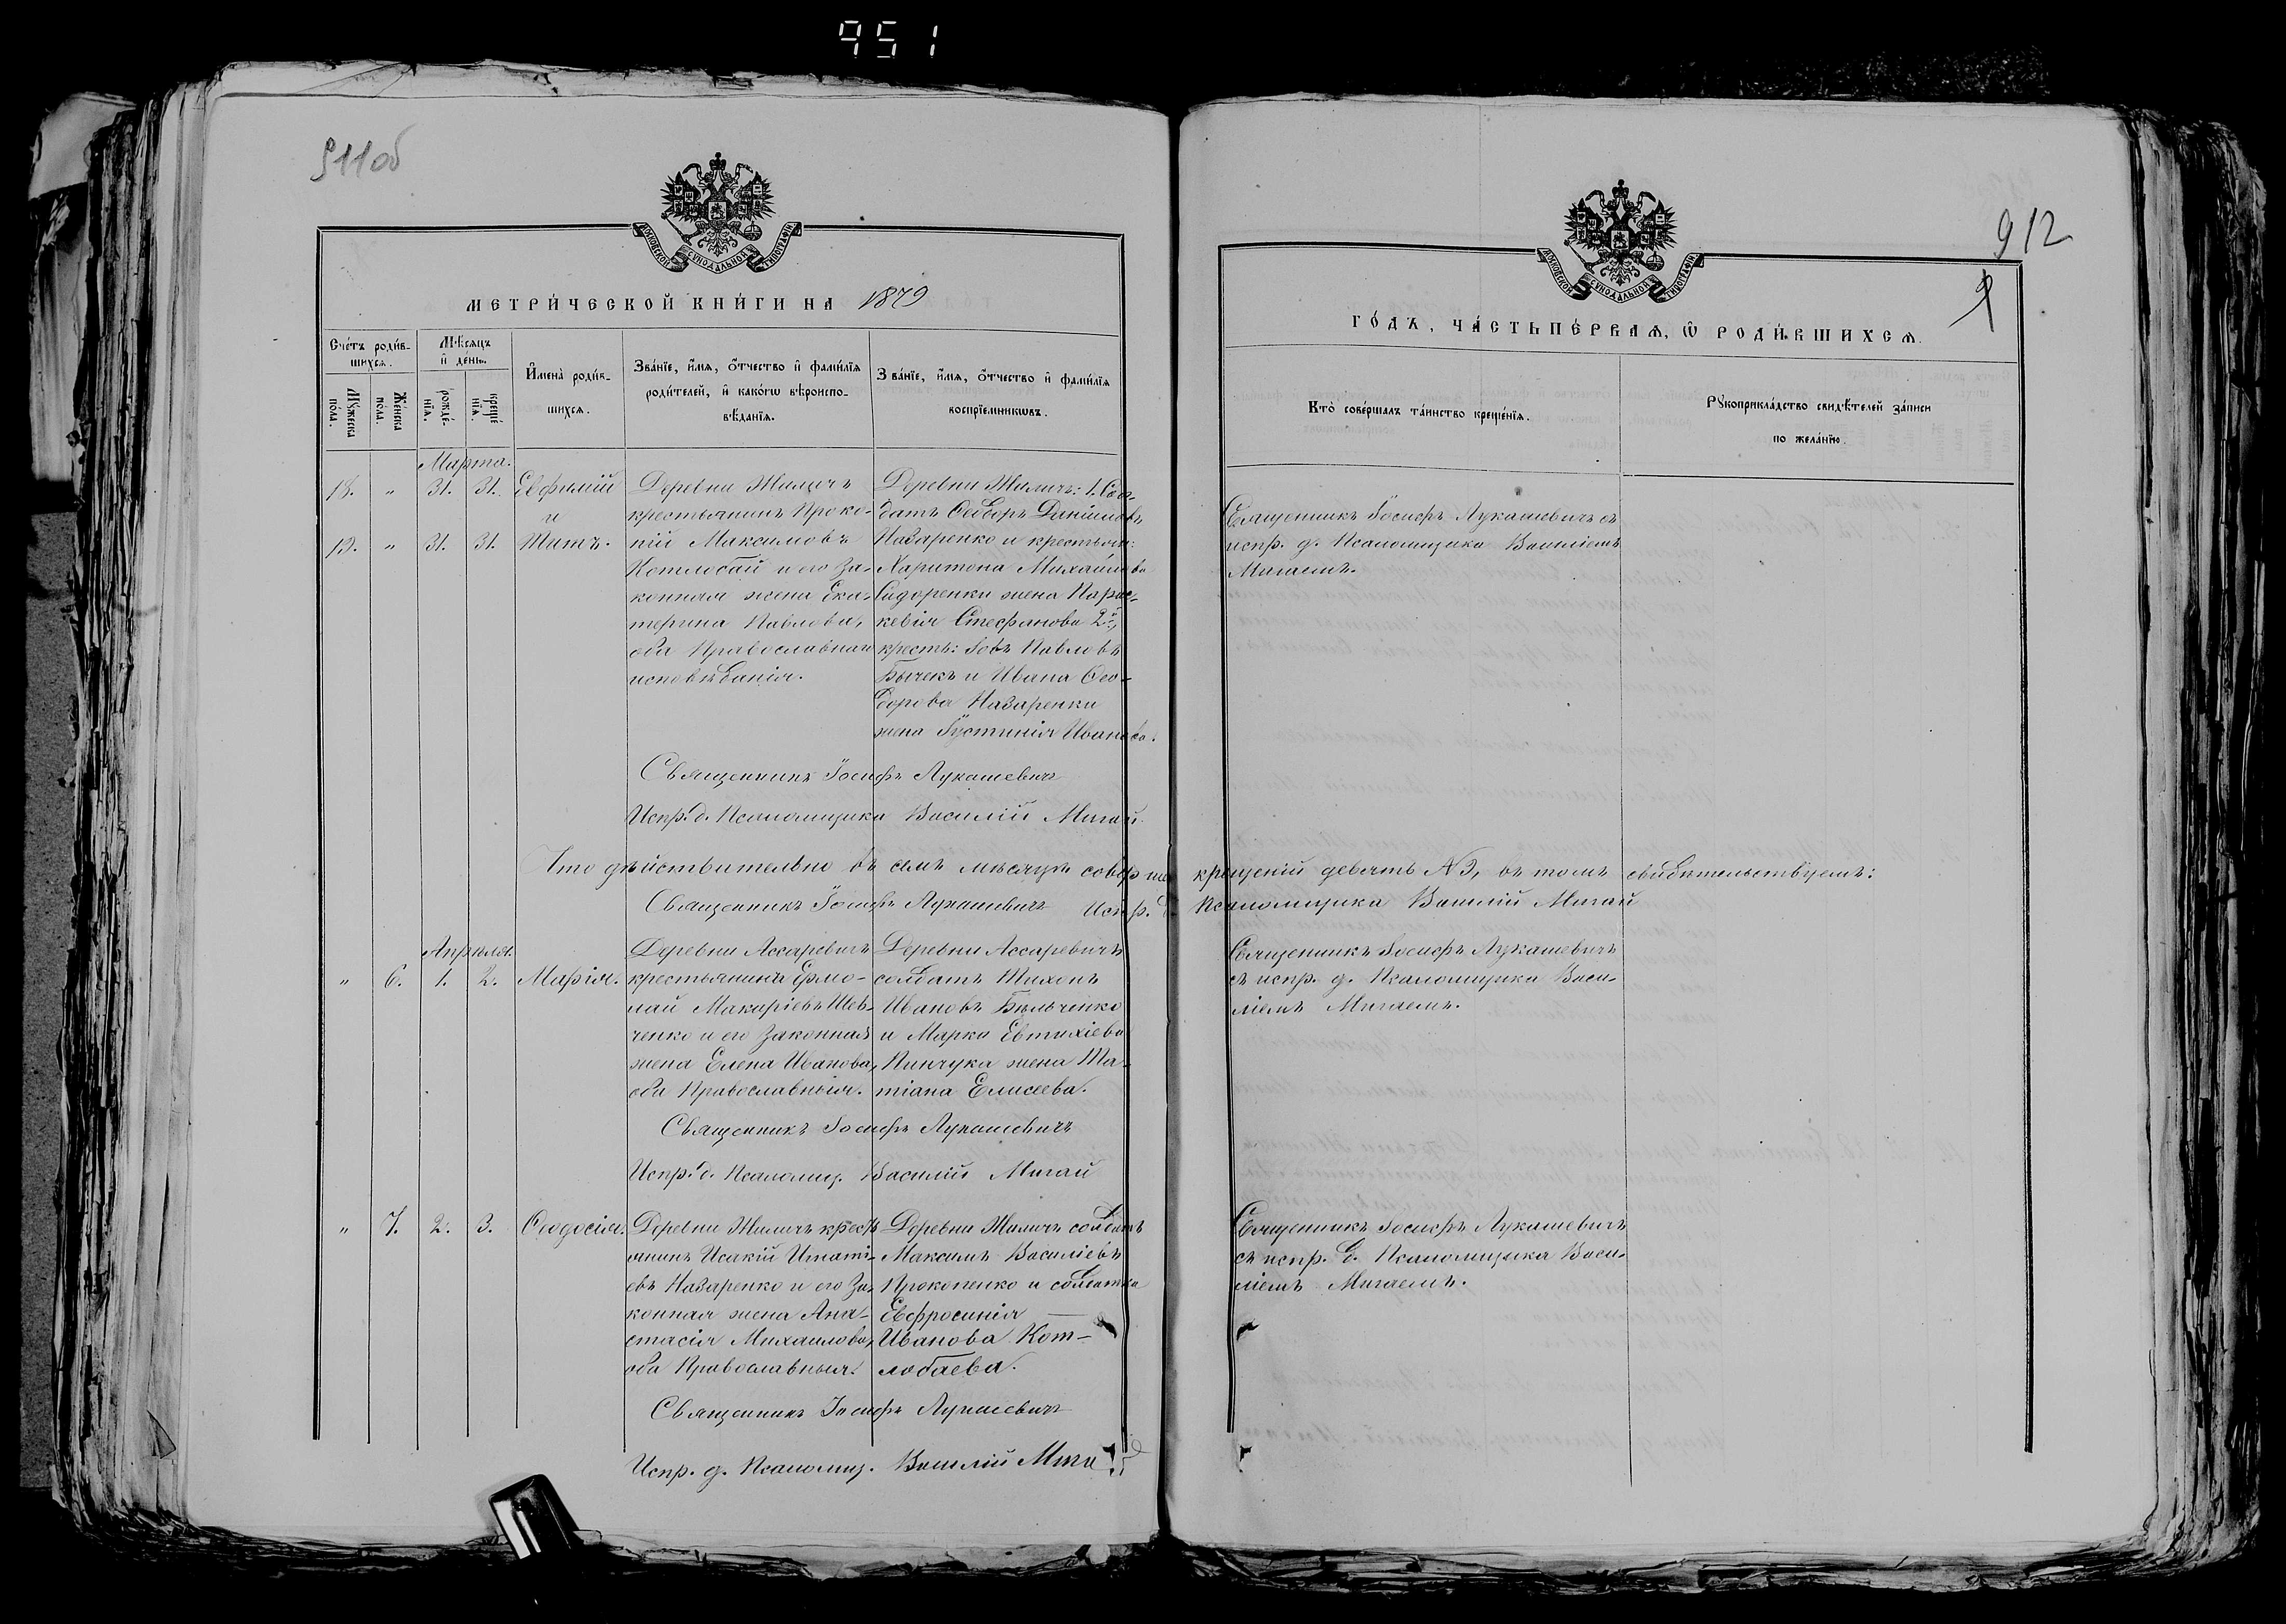 951
911об
МОСКОВСКОЙ СѴНОДАЛЬНОЙ ТИПОГРАФІИ
МЕТРИ́ЧЕСКОЙ КНИ́ГИ НА 1879
Сче́тъ роди́в-
шихсѧ.
Мѣ́сѧцъ
и҆ де́нь.
Мꙋ́жеска
по́ла.
Же́нска
по́ла.
рожде́-
нїѧ.
креще́
нїѧ.
И҆мена̀ роди́в-
шихсѧ.
Зва́нїе, и҆́мѧ, ѻ҆́тчество и҆ фами́лїѧ
роди́телей, и҆ како́гѡ вѣроиспо-
вѣ́данїѧ.
Зва́нїе, и҆́мѧ, ѻ҆́тчество и҆ фами́лїѧ
воспрїе́мникѡвъ.
Марта.
18. " 31. 31. Евфимій
и
19. " 31. 31. Титъ.
Деревни Жиличъ
крестьянинъ Проко-
пій Максимовъ
Котлобай и его за-
конная жена Ека-
терина Павлова,
оба Православнаго
исповѣданія.
Деревни Жиличъ: 1. Сол-
датъ Ѳеодоръ Даніиловъ
Назаренко и крестьян:
Харитона Михайлова
Сидоренки жена Парас-
кевія Стефанова 2й,
кресть: Іовъ Павловъ
Бычекъ и Ивана Ѳео-
дорова Назаренки
жена Іустинія Иванова.
Священникъ Іосифъ Лукашевичъ
Испр. д. Псаломщика Василій Мигай
Что дѣйствительно въ семъ мѣсяцѣ соверше крещеній девять №9, въ томъ свидѣтельствуемъ:
Священникъ Іосифъ Лукашевичъ Испр. д. Псаломщика Василій Мигай
Апрѣля.
" 6. 1. 2. Марія.
Деревни Ассаревичъ
крестьянинъ Ермо-
лай Макаріевъ Шев-
ченко и его законная
жена Елена Иванова,
оба Православныя.
Деревни Ассаревичъ
солдатъ Тихонъ
Ивановъ Бѣльченко
и Марка Евтихіева
Пинчука жена Та-
тіана Елисеева.
Священникъ Іосифъ Лукашевичъ
Испр. д. Псаломщ. Василій Мигай
" 7. 2. 3. Ѳеодосія.
Деревни Жиличъ кресть
янинъ Исакій Игнаті-
евъ Назаренко и его за-
конная жена Ана-
стасія Михаилова,
оба Православныя.
Деревни Жиличъ солдатъ
Максимъ Василіевъ
Прокопенко и солдатка
Евфросинія —
Иванова Кот-
лобаева.
Священникъ Іосифъ Лукашевичъ
Испр. д. Псаломщ. Василій Мигай
912
9
МОСКОВСКОЙ СѴНОДАЛЬНОЙ ТИПОГРАФІИ
ГО́ДЪ, ЧА́СТЬ ПЕ́РВАѦ, Ѽ РОДИ́ВШИХСѦ.
Кто̀ соверша́лъ та́инство креще́нїѧ.
Рꙋкоприкла́дство свидѣ́телей за́писи
по жела́нїю.
Священникъ Іосифъ Лукашевичъ съ
испр. д. Псаломщика Василіемъ
Мигаемъ.
Священникъ Іосифъ Лукашевичъ
съ испр. д. Псаломщика Васи-
ліемъ Мигаемъ.
Священникъ Іосифъ Лукашевичъ
съ испр. д. Псаломщика Васи-
ліемъ Мигаемъ.